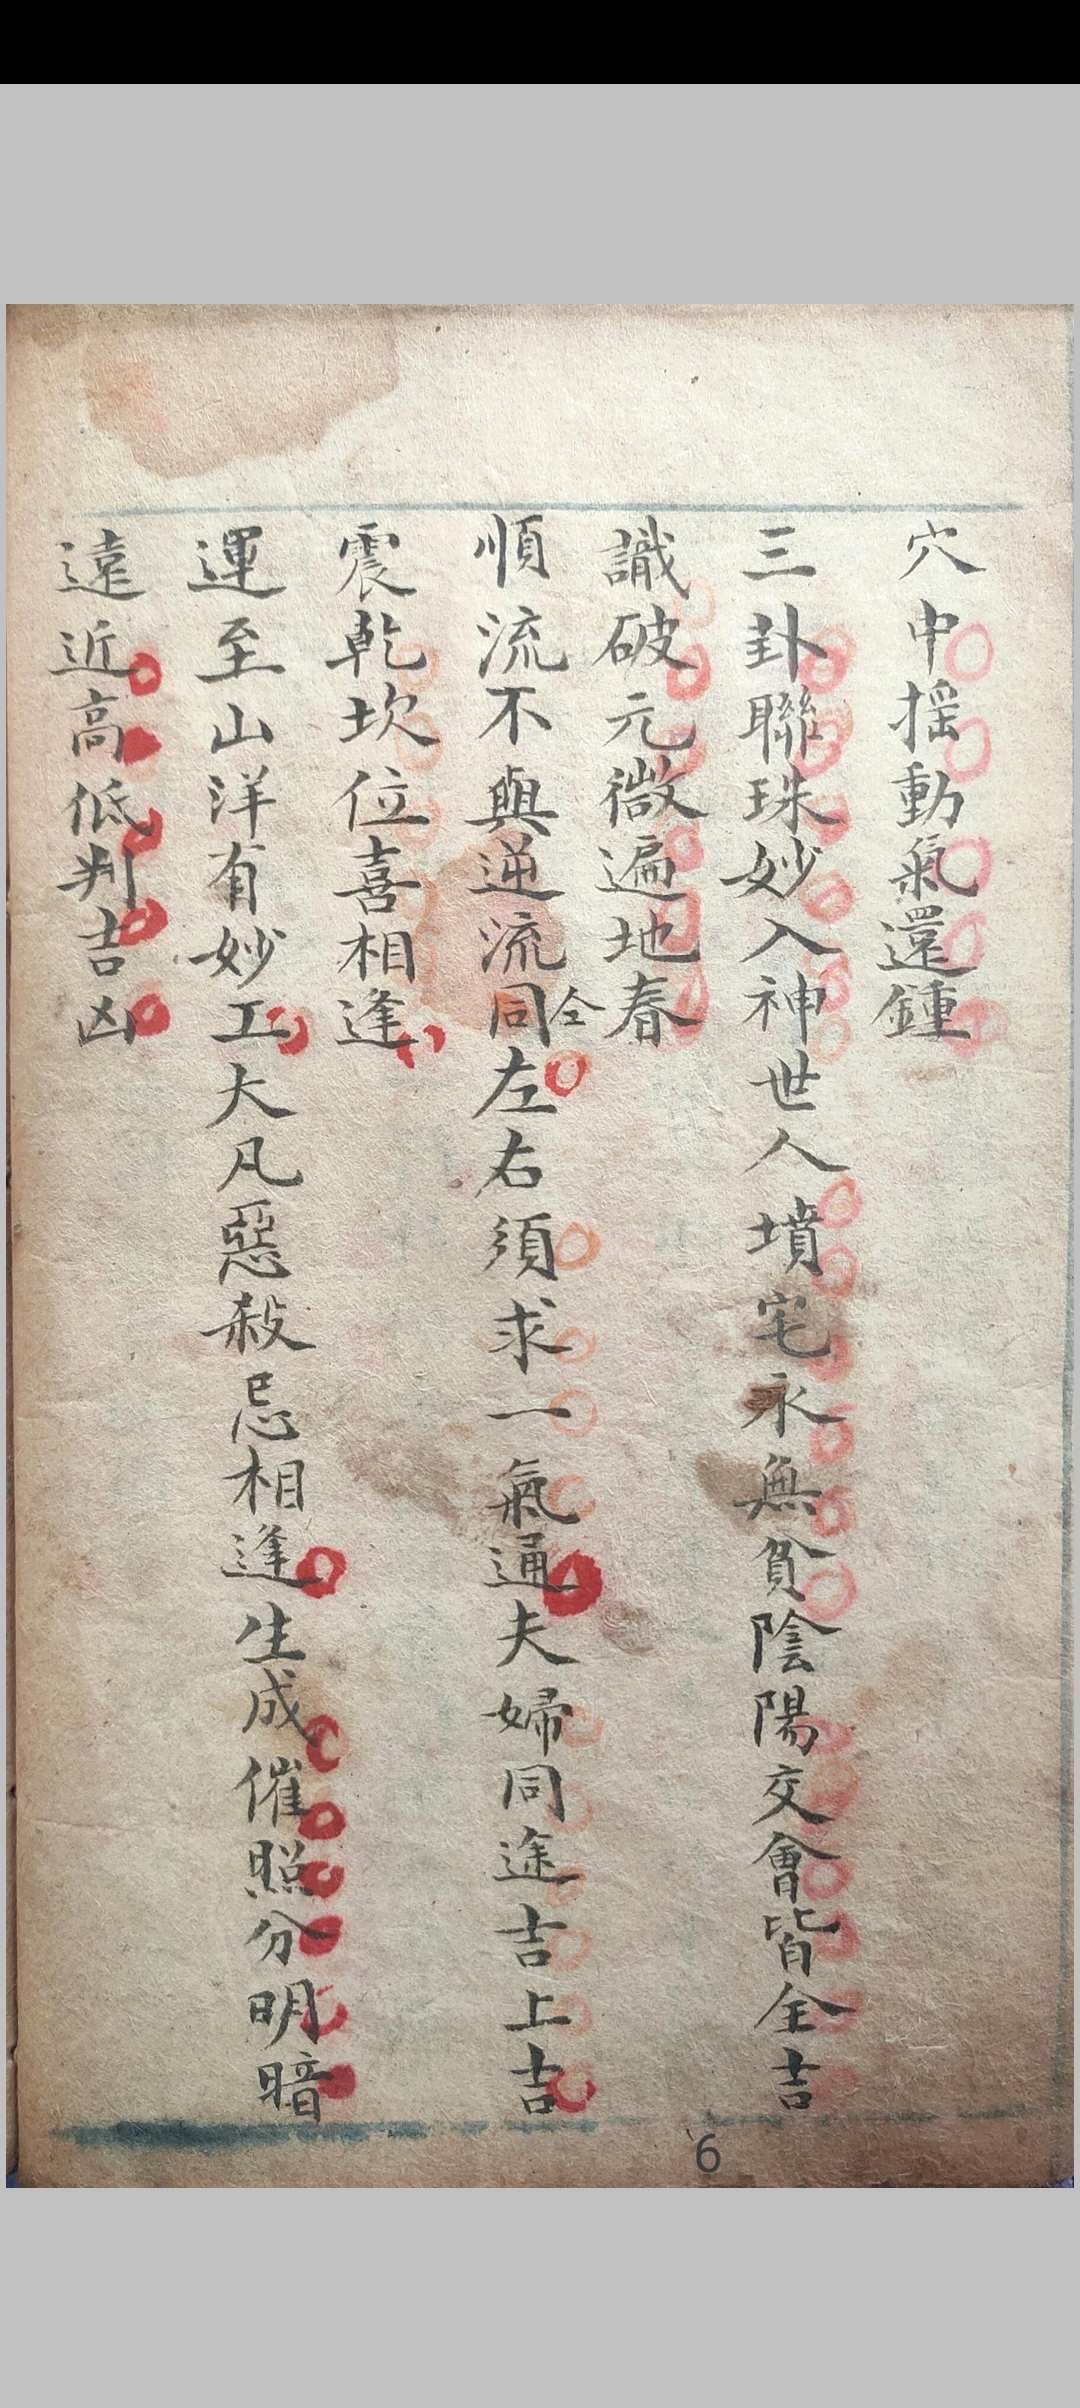 穴中搖動氣還鍾
三卦聯珠妙入神世人墳宅永無貧陰陽交會皆全吉
識破元微遍地春
順流不與逆流同仝左右須求一氣通夫婦同途吉上吉
震乾坎位喜相逢
運至山洋有妙工大凡惡殺忌相逢生成催照分明暗
遠近高低判吉凶
6